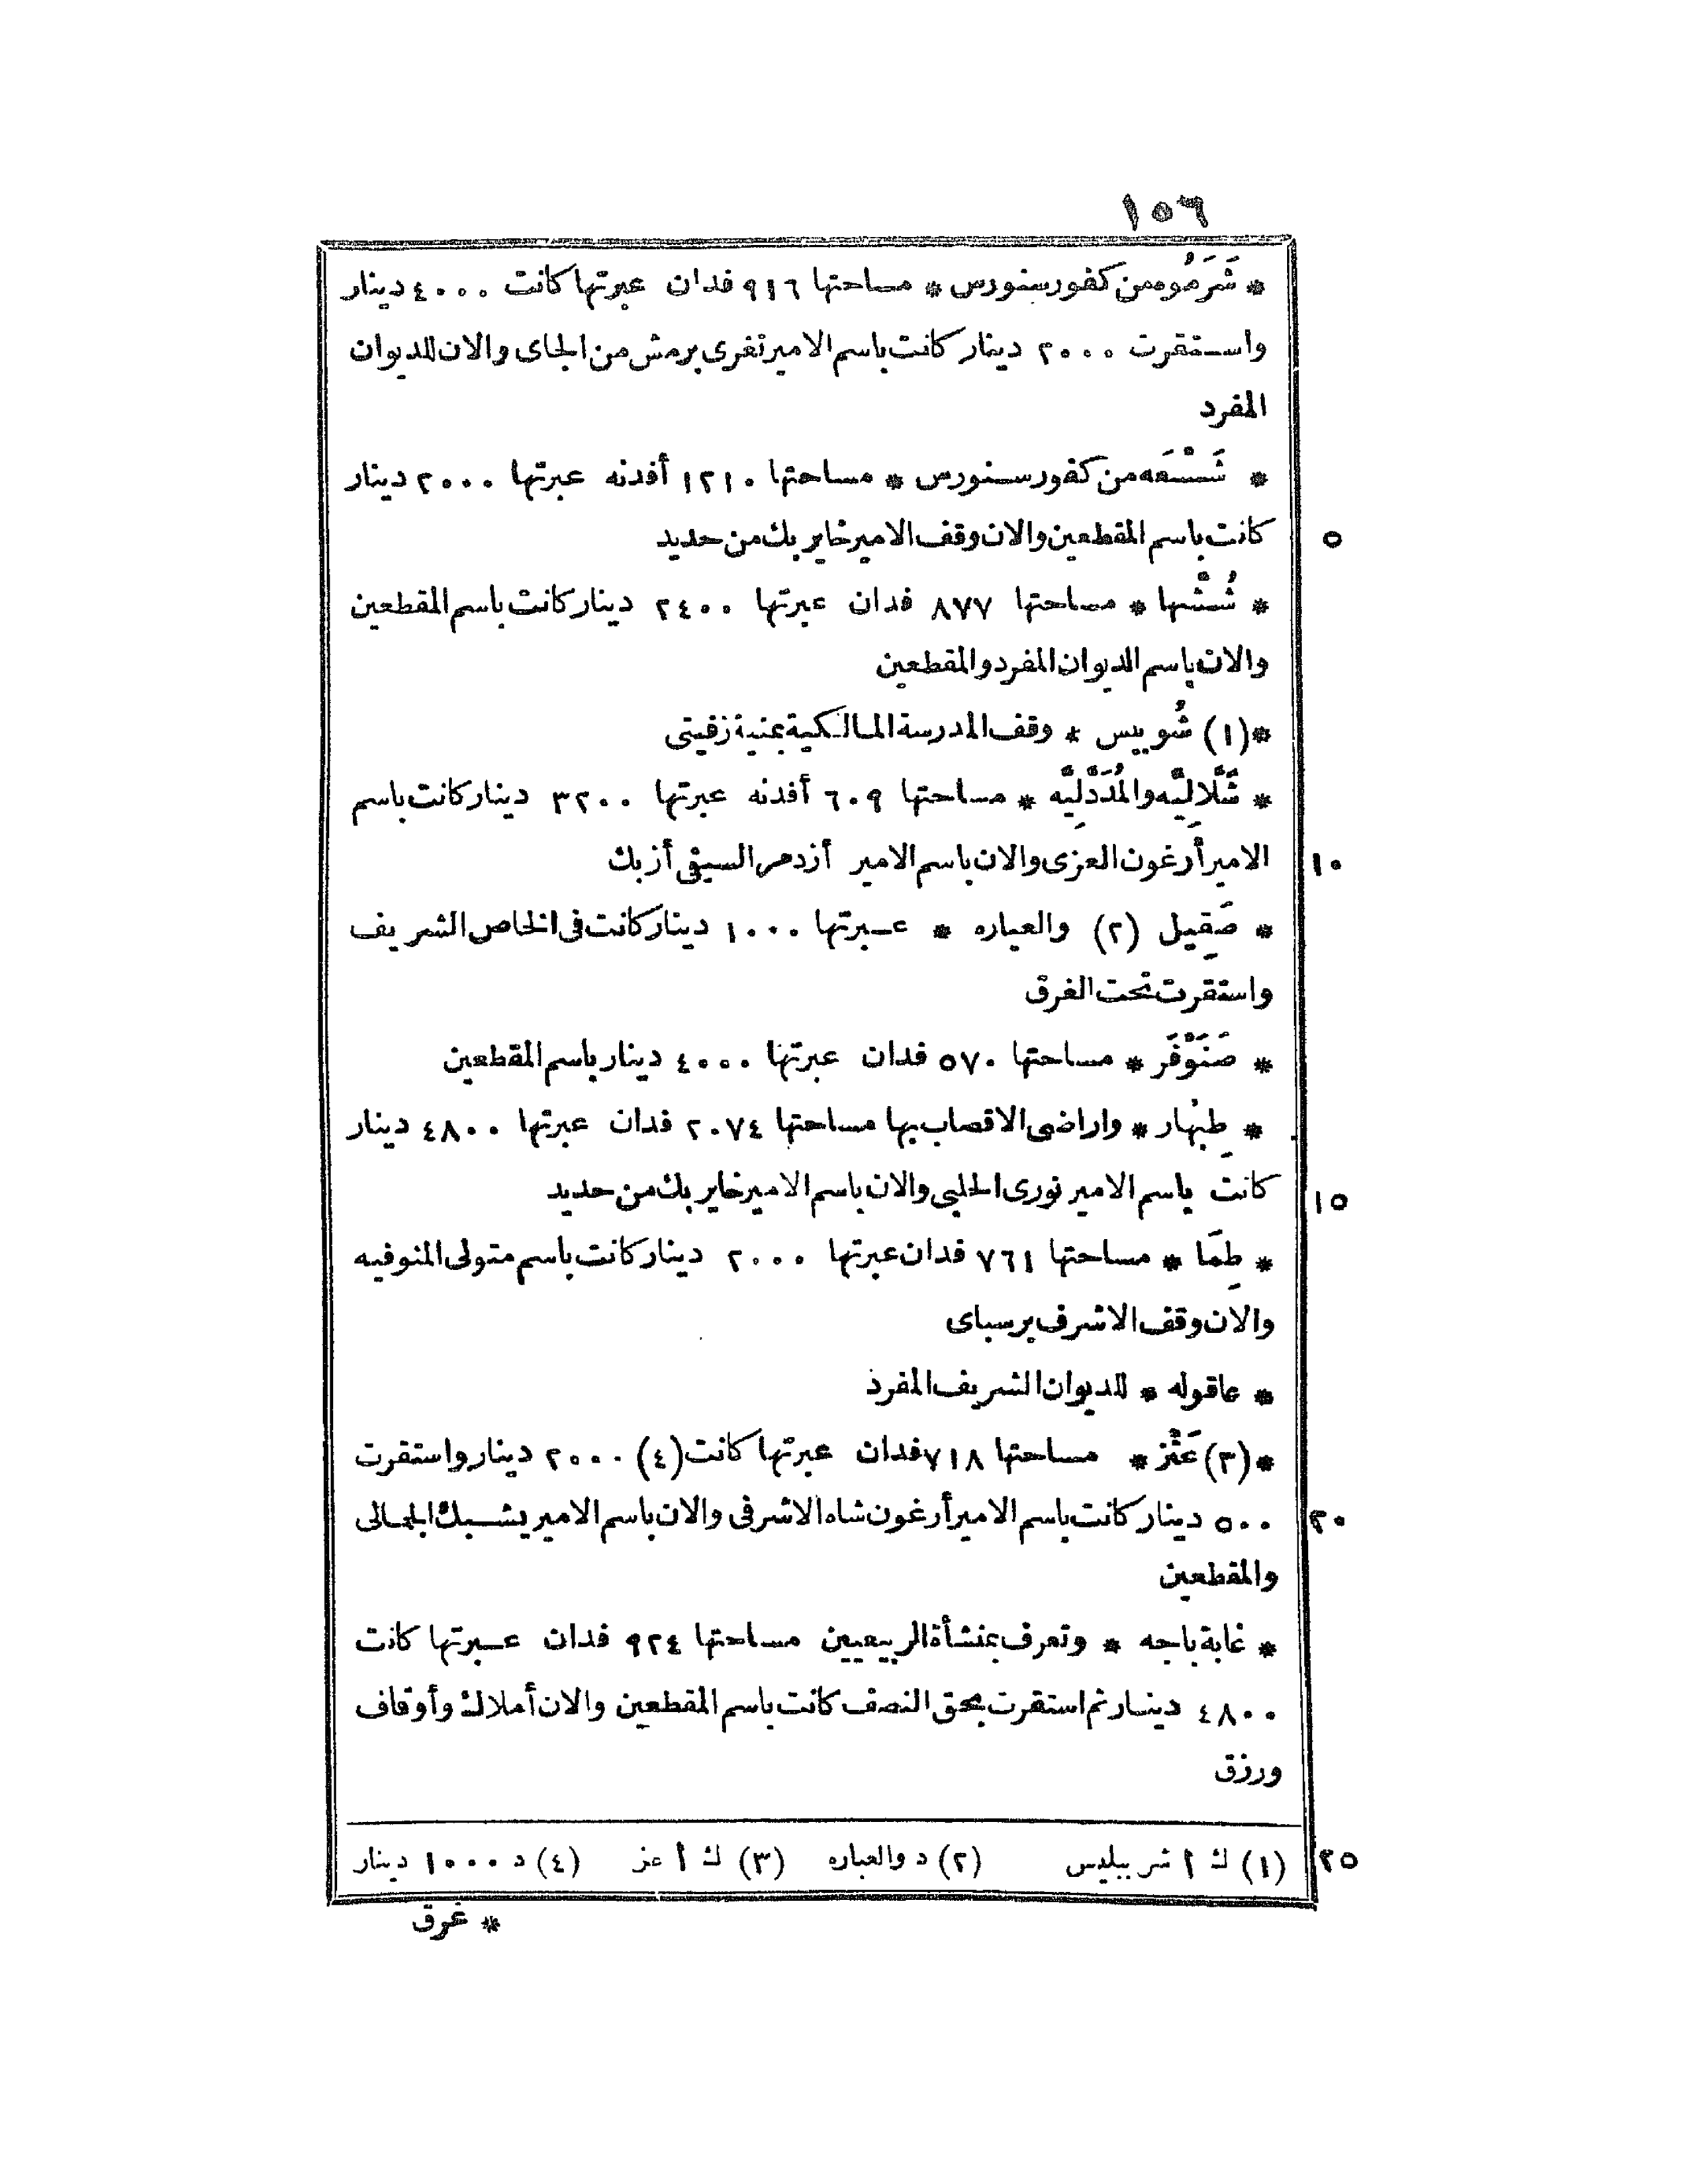 ١٥٦
* شَرَمُوه من كفور سنورس * مساحتها ٩١٦ فدان عبرتها كانت ٤٠٠٠ دينار
واستقرت ٢٠٠٠ دينار كانت باسم الامير تغرى برمش من الجاى والان للديوان
المفرد
* شَسْعَه من كفور سنورس * مساحتها ١٢١٠ أفدنه عبرتها ٢٠٠٠ دينار
٥ كانت باسم المقطعين والان وقف الامير خاير بك من حديد
* شُشْها * مساحتها ٨٧٧ فدان عبرتها ٢٤٠٠ دينار كانت باسم المقطعين
والان باسم الديوان المفرد والمقطعين
*(١) شُوبيس * وقف المدرسة المالكية بمنية زفيتى
* شَّلَالِيَّه والمُدَدْلِيَّه * مساحتها ٦٠٩ أفدنه عبرتها ٣٢٠٠ دينار كانت باسم
١٠ الامير أرغون العزى والان باسم الامير أزدمر السيفى أزبك
* صَقِيل (٢) والعباره * عبرتها ١٠٠٠ دينار كانت فى الخاص الشريف
واستقرت تحت الغرق
* صَنَوْفَر * مساحتها ٥٧٠ فدان عبرتها ٤٠٠٠ دينار باسم المقطعين
* طِبْهار * واراضى الاقصاب بها مساحتها ٢٠٧٤ فدان عبرتها ٤٨٠٠ دينار
١٥ كانت باسم الامير نورى الحلبى والان باسم الامير خاير بك من حديد
* طِمَا * مساحتها ٧٦١ فدان عبرتها ٢٠٠٠ دينار كانت باسم متولى المنوفيه
والان وقف الاشرف برسباى
* عاقوله * للديوان الشريف المفرد
*(٣) عَثْز * مساحتها ٧١٨ فدان عبرتها كانت (٤) ٢٠٠٠ دينار واستقرت
٢٠ ٥٠٠ دينار كانت باسم الامير أرغون شاه الاشرفى والان باسم الامير يشبك الجمالى
والمقطعين
* غابة باجه * وتعرف بمنشأة الربيعيين مساحتها ٩٢٤ فدان عبرتها كانت
٤٨٠٠ دينار ثم استقرت بحق النصف كانت باسم المقطعين والان أملاك وأوقاف
ورزق
٢٥ (١) ك أ شريبليس (٢) د والعباره (٣) ك أ عز (٤) د ١٠٠٠ دينار
* غرق